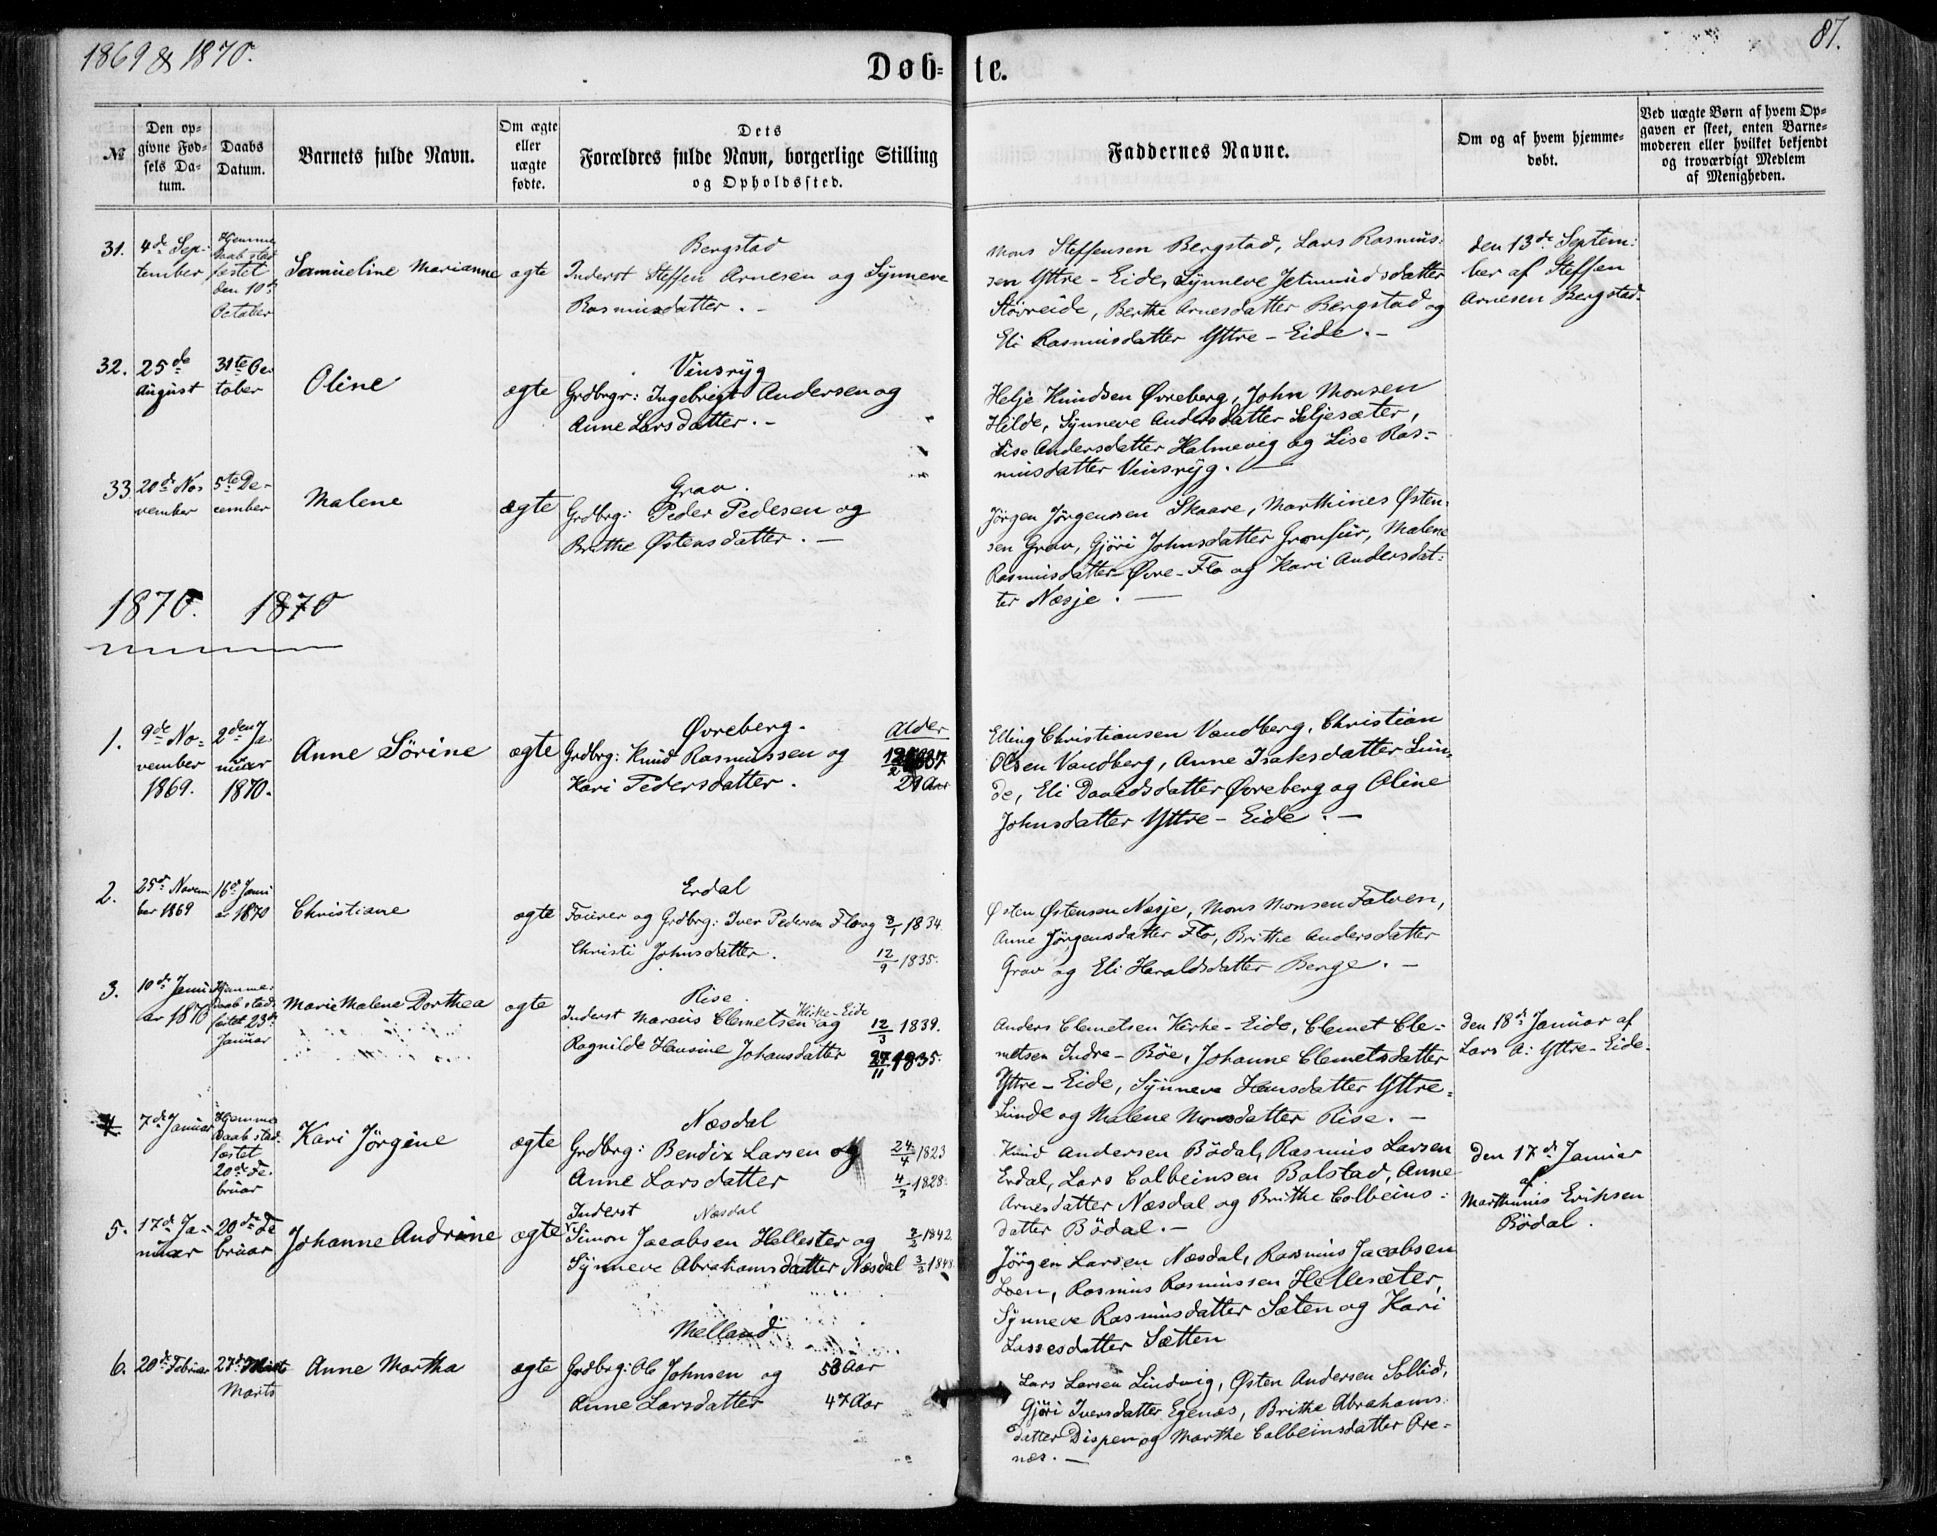 1869 & 1870.
87.
Døb-te.
№
Den opgivne Fødsels Datum.
Daabs Datum.
Barnets fulde Navn.
Om ægte eller uægte fødte.
Dets Forældres fulde Navn, borgerlige Stilling og Opholdssted.
Faddernes Navne.
Om og af hvem hjemmedøbt.
Ved uægte Børn af hvem Opgaven er skeet, enten Barnemoderen eller hvilket bekjendt og troværdigt Medlem af Menigheden.
31.
4de Sep-
tember
Hjemme
daab stad
fæstet
den 10de
October
Samueline Marianne
ægte
Bergstad
Inderst Steffen Arnesen og Synneve
Rasmusdatter. -
Mons Steffensen Bergstad, Lars Rasmus-
sen Yttre-Eide, Synneve Jetmundsdatter
Støvreide, Berthe Arnesdatter Bergstad og
Eli Rasmusdatter Yttre-Eide. -
den 13de Septem-
ber af Steffen
Arnesen Bergstad.
32.
25de
August
31te Oc-
tober
Oline
ægte
Vinsryg
Grdbrgr: Ingebrigt Andersen og
Anne Larsdatter. -
Helje Knudsen Øvreberg, John Monsen
Hilde, Synneve Andersdatter Seljesæter,
Lise Andersdatter Holmevig og Lise Ras-
musdatter Vinsryg. -
33
20de No-
vember
5te De-
cember
Malene
ægte
Grav.
Grdbrg: Peder Pedesen og
Brithe Østensdatter. -
Jørgen Jørgensen Skaare, Marthines Østen-
sen Grav, Gjöri Johnsdatter Gronfur, Malene
Rasmusdatter Øvre-Flo og Kari Andersdat-
ter Næsje. -
1870. 1870
1.
9de No-
vember
1869.
2den Ja-
nuar
1870.
Anne Sörine
ægte
Øvreberg.
Alder
Grdbrg: Knud Rasmussen og
Kari Pedersdatter.
29 Aar
Elling Christiansen Vandberg, Christian
Olsen Vandberg, Anne Isaksdatter Lun-
de, Eli Davidsdatter Øvreberg og Oline
Johnsdatter Yttre-Eide. -
2.
25de Novem-
ber 1869
16de Janu-
ar 1870
Christiane
ægte
Erdal
Fourer og Grdbrg: Iver Pedersen Flo og 8/1 1834.
Christi Johnsdatter. 12/9 1835.
Østen Østensen Næsje, Mons Monsen Fatven,
Anne Jørgensdatter Flo, Brithe Andersdatter
Grav og Eli Haraldsdatter Berge. -
3.
10de Janu-
ar 1870
Hjemme-
daab stad-
fæstet 23de
Januar
Marie Malene Dorthea
ægte
Rise.
Kirke-Eide
Inderst Marcus Clemetsen og 12/3 1839.
Ragnilde Hansine Johansdatter 27/11 1835.
Anders Clemetsen Kirke-Eide, Clemet Cle-
metsen Indre-Böe, Johanne Clemetsdatter
Yttre-Eide, Synneve Hansdatter Yttre-
Lunde og Malene Monsdatter Rise. -
den 18de Januar af
Lars A: Yttre-Eide.
4
7de Januar
Hjemme
Daab stad-
fæstet
20de Fe-
bruar
Kari Jörgine
ægte
Næsdal
Grdbrg: Bendix Larsen og 24/4 1823
Anne Larsdatter 4/7 1828.
Knud Andersen Bödal, Rasmus Larsen
Erdal, Lars Colbeinsen Bolstad, Anne
Arnesdatter Næsdal og Brithe Colbeins-
datter Bödal. -
den 17de Januar
af
Marthinus Eriksen
Bödal.
5.
17de Ja-
nuar
20de Fe
bruar
Johanne Andrine
ægte
Inderst Næsdal
Simon Jacobsen Hellester og 7/2 1842.
Synneve Abrahamsdatter Næsdal 3/3 1848.
Jörgen Larsen Næsdal, Rasmus Jacobsen
Loen, Rasmus Rasmussen Hellesæter,
Synneve Rasmusdatter Sæten og Kari
Lassesdatter Sætten
6.
20de Febuar
27de
Marts
Anne Martha
ægte
Melland
Grdbrg: Ole Johnsen og 53 Aar
Anne Larsdatter 47 Aar
Lars Larsen Lindvig, Østen Andersen Sollid,
Gjöri Iversdatter Egenæs, Brithe Abrahams-
datter Dispen og Marthe Colbeinsdatter Præ-
næs. -